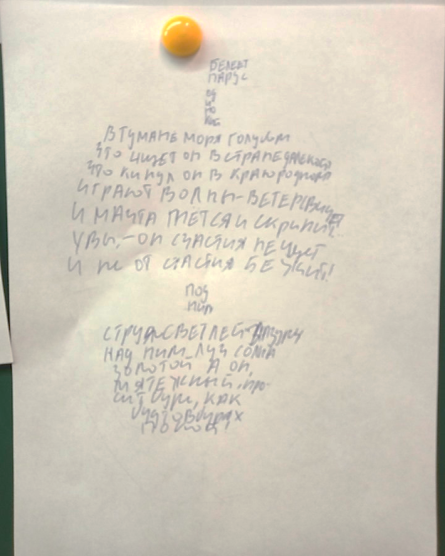 БЕЛЕЕТ
ПАРУС
ОД
И
НО
КОЙ
В ТУМАНЕ МОРЯ ГОЛУБОМ
ЧТО ИЩЕТ ОН В СТРАНЕ ДАЛЕКОЙ
ЧТО КИНУЛ ОН В КРАЮ РОДНОМ
ИГРАЮТ ВОЛНЫ-ВЕТЕР СВИЩЕТ
И МАЧТА ГНЕТСЯ И СКРИПИТ
УВЫ,-ОН СЧАСТИЯ НЕ ИЩЕТ
И НЕ ОТ СЧАСТИЯ БЕЖИТ!
ПОД
НИМ
СТРУЯ СВЕТЛЕЙ ЛАЗУРИ
НАД НИМ ЛУЧ СОЛНЦА
ЗОЛОТОЙ А ОН,
МЯТЕЖНЫЙ, ПРО-
СИТ БУРИ, КАК
БУДТО В БУРЯХ
ПОКОЙ!